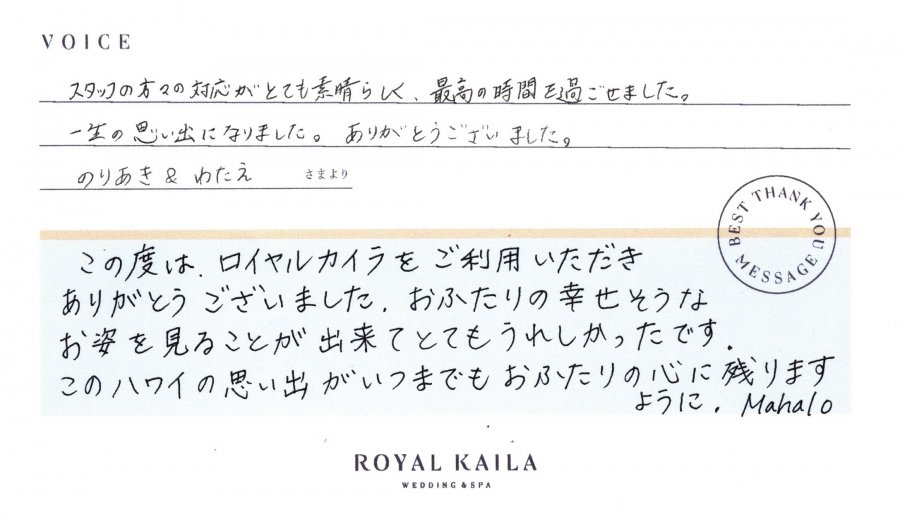 VOICE
スタッフの方々の対応がとても素晴らしく、最高の時間を過ごせました。
一生の思い出になりました。ありがとうございました。
のりあき & わたえ さまより
BEST THANK YOU MESSAGE
この度は、ロイヤルカイラをご利用いただき
ありがとうございました。おふたりの幸せそうな
お姿を見ることが出来てとてもうれしかったです。
このハワイの思い出がいつまでもおふたりの心に残ります
ように。Mahalo
ROYAL KAILA
WEDDING & SPA